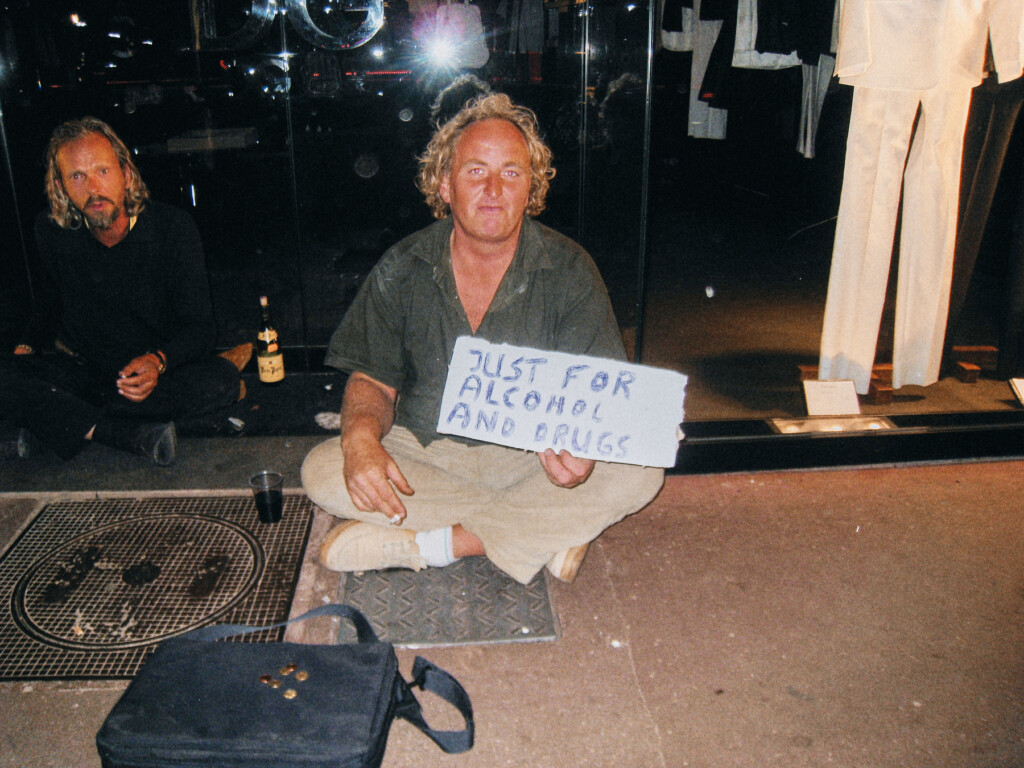 JUST FOR
ALCOHOL
AND DRUGS